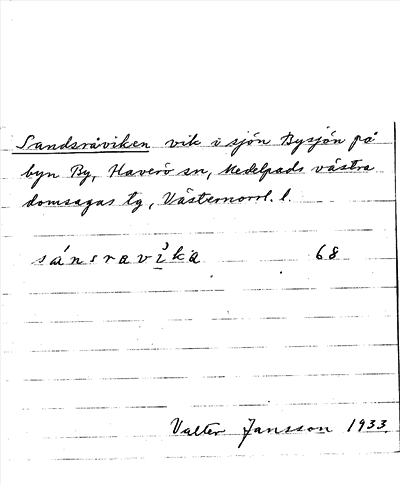 Sandsråviken vik i sjön Bysjön på
byn By, Haverö sn, Medelpads västra
domsagas tg, Västernorrl. l.
sánsravìka 68
Valter Jansson 1933.